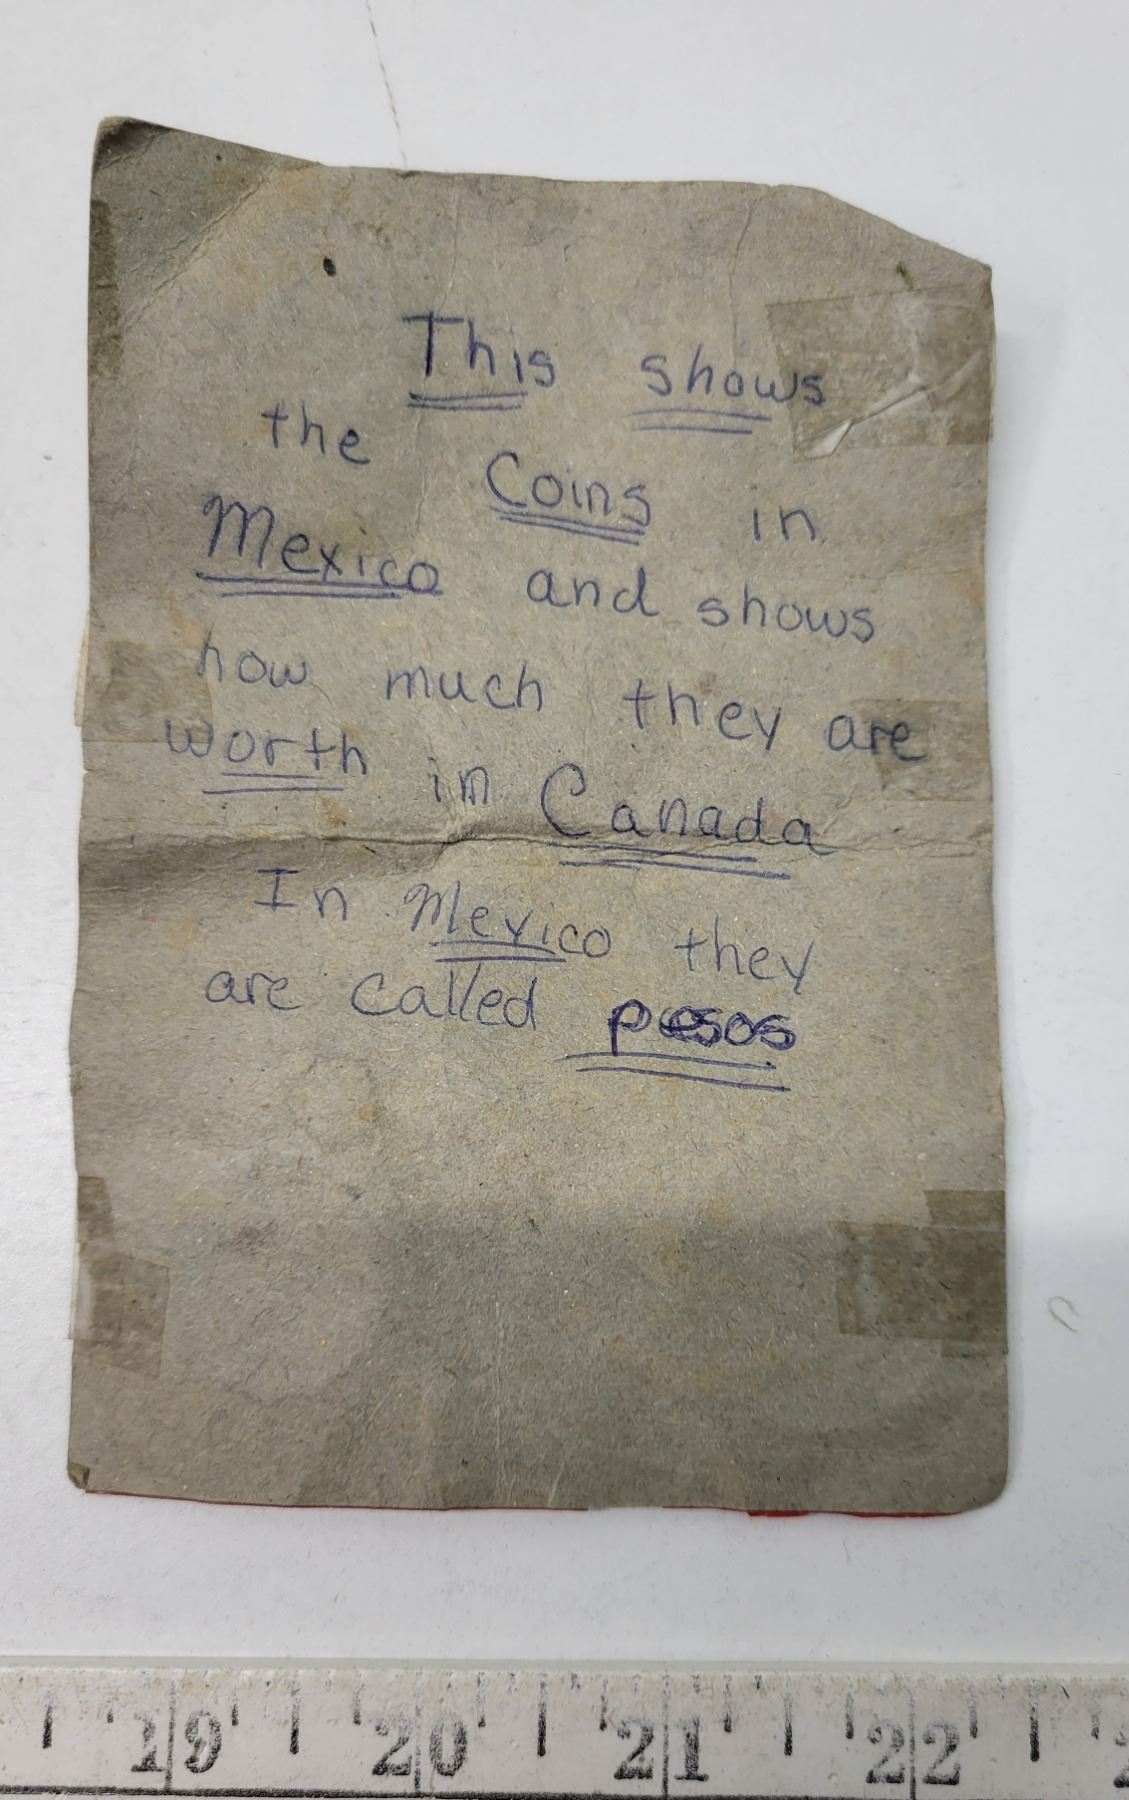 This shows
the Coins in
Mexico and shows
how much they are
worth in Canada
In Mexico they
are called pesos
19 20 21 22